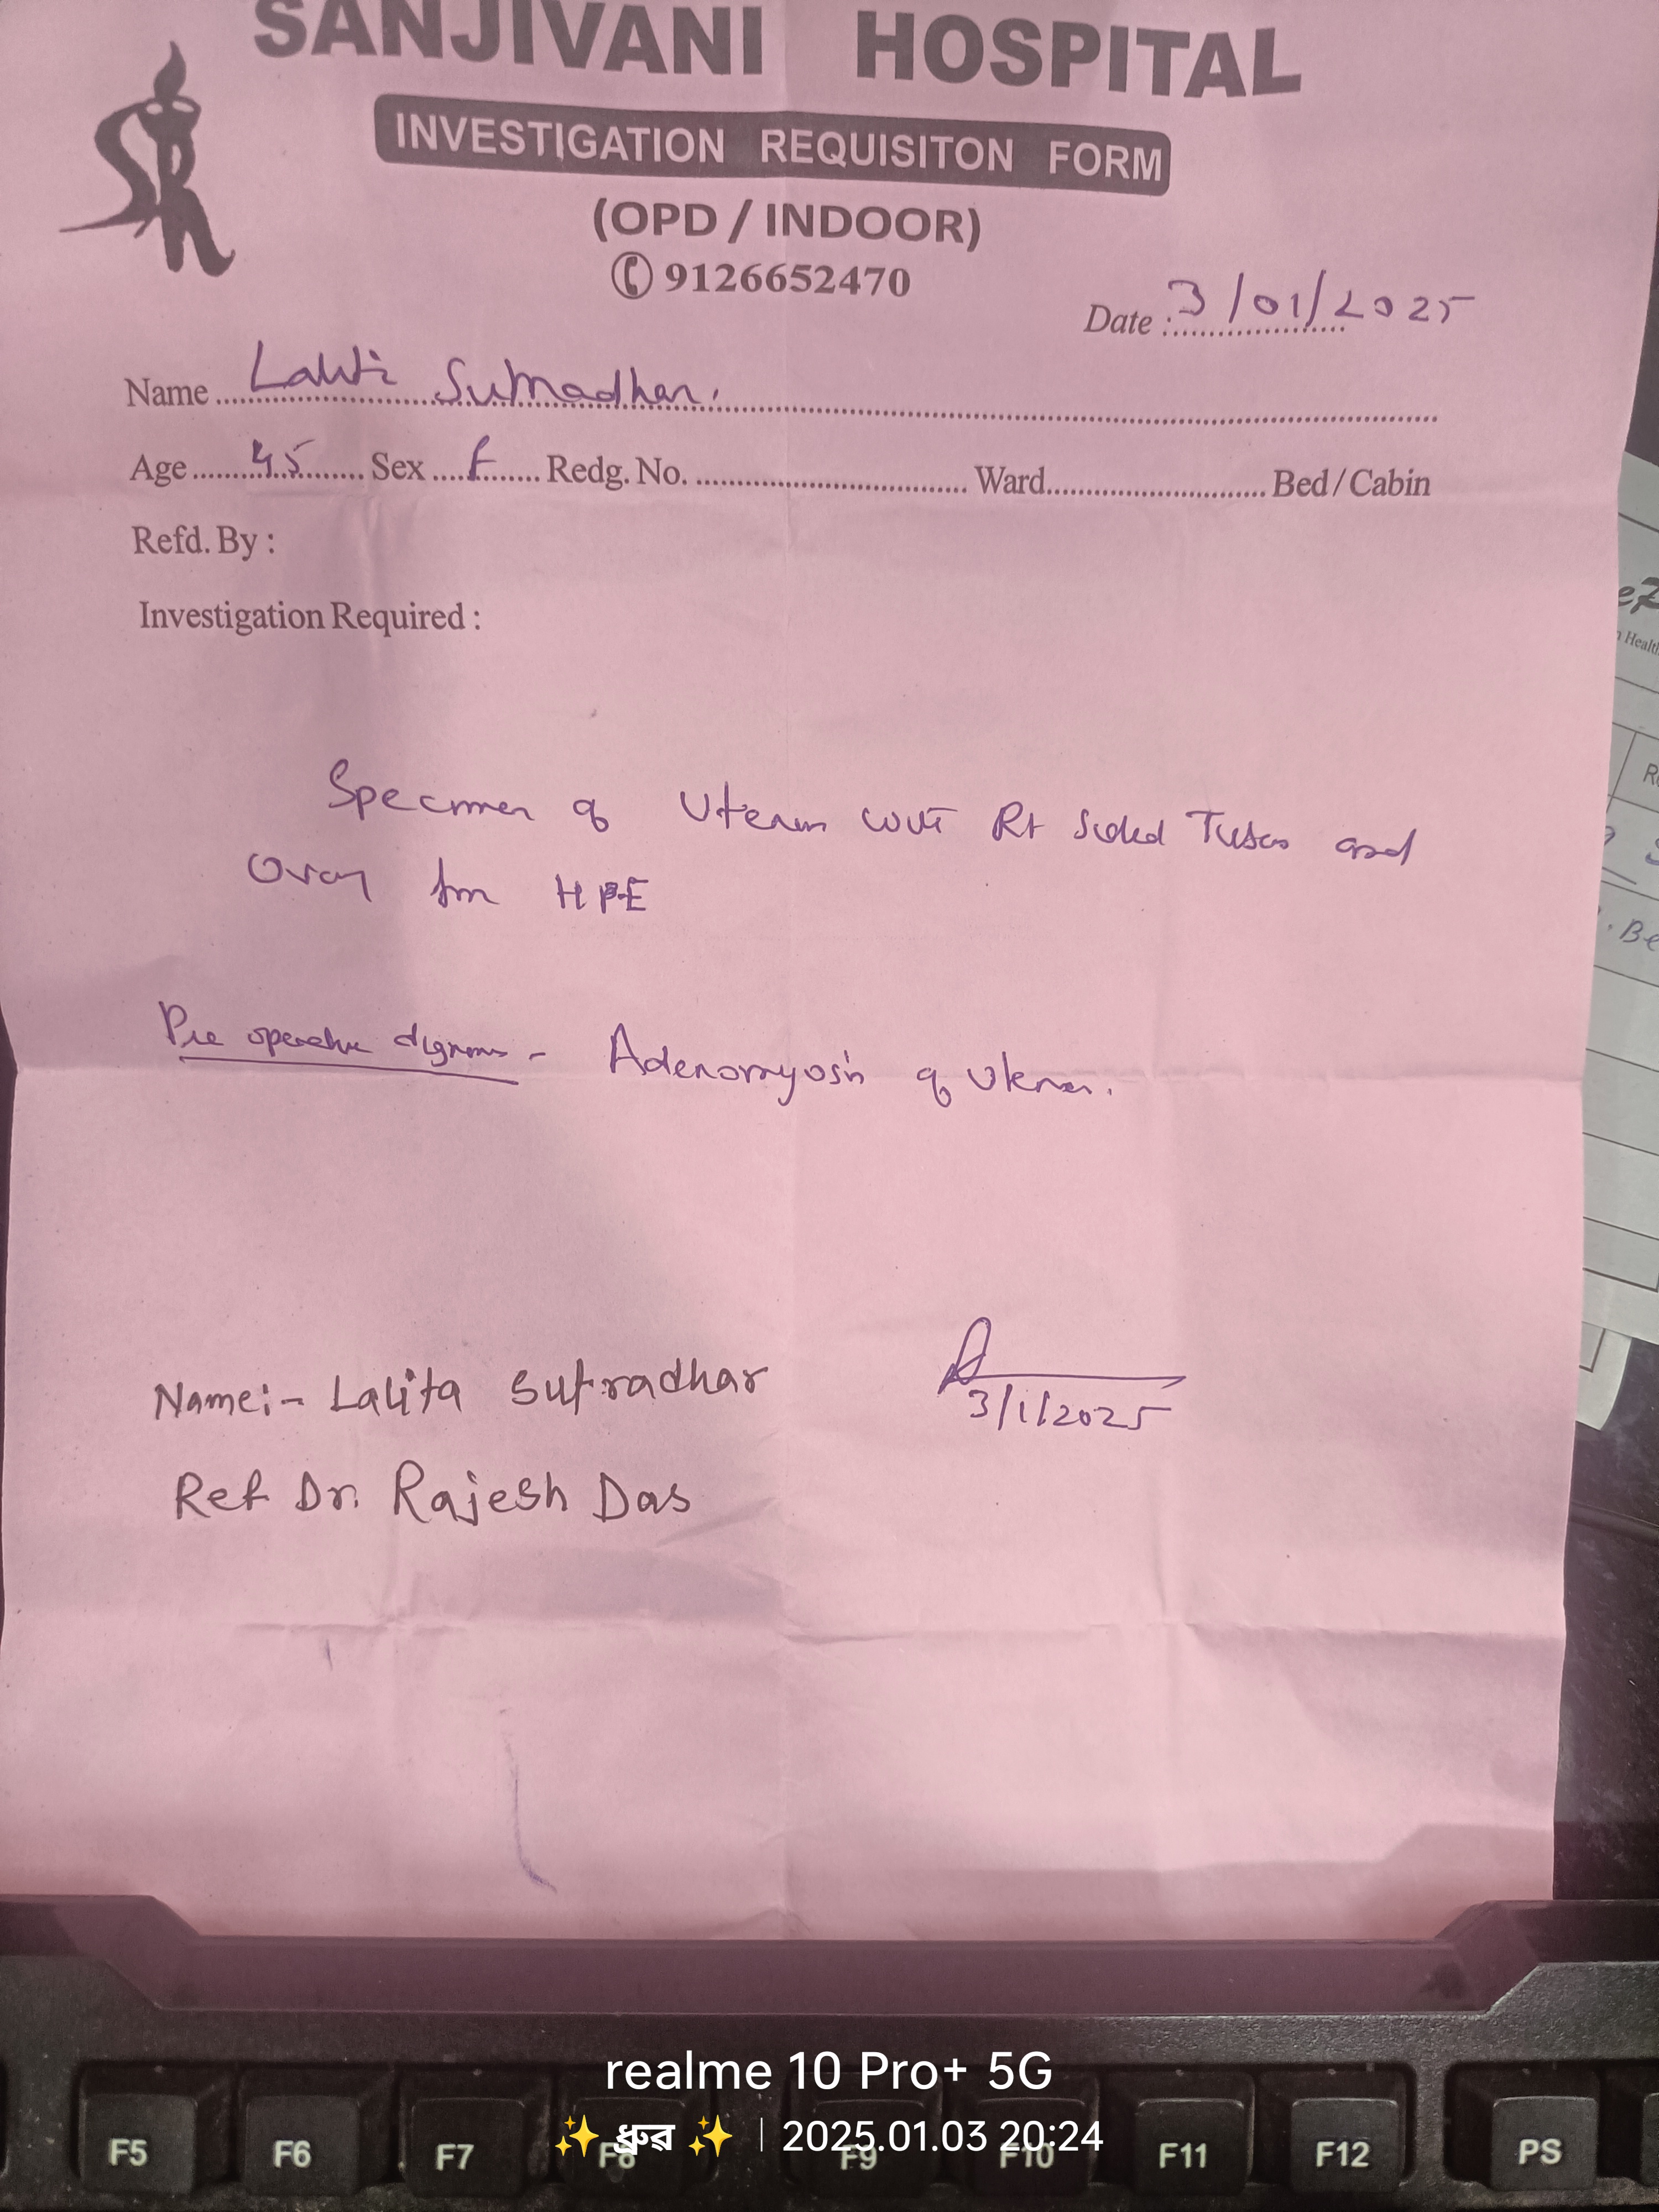 SANJIVANI HOSPITAL
INVESTIGATION REQUISITON FORM
(OPD / INDOOR)
9126652470
Date : 3/01/2025
Name Sutradhar.
Age 45 Sex F Redg. No. Ward Bed/Cabin
Refd. By :
Investigation Required :
Specimen of Uterus with Rt sided Tubes and
Ovary for HPE
Pre operative diagnosis - Adenomyosis of Uterus.
Name:- Lalita Sutradhar
3/1/2025
Ref Dr. Rajesh Das
realme 10 Pro+ 5G
✨ ধ্রুৱ ✨ | 2025.01.03 20:24
F5 F6 F7 F8 F9 F10 F11 F12 PS